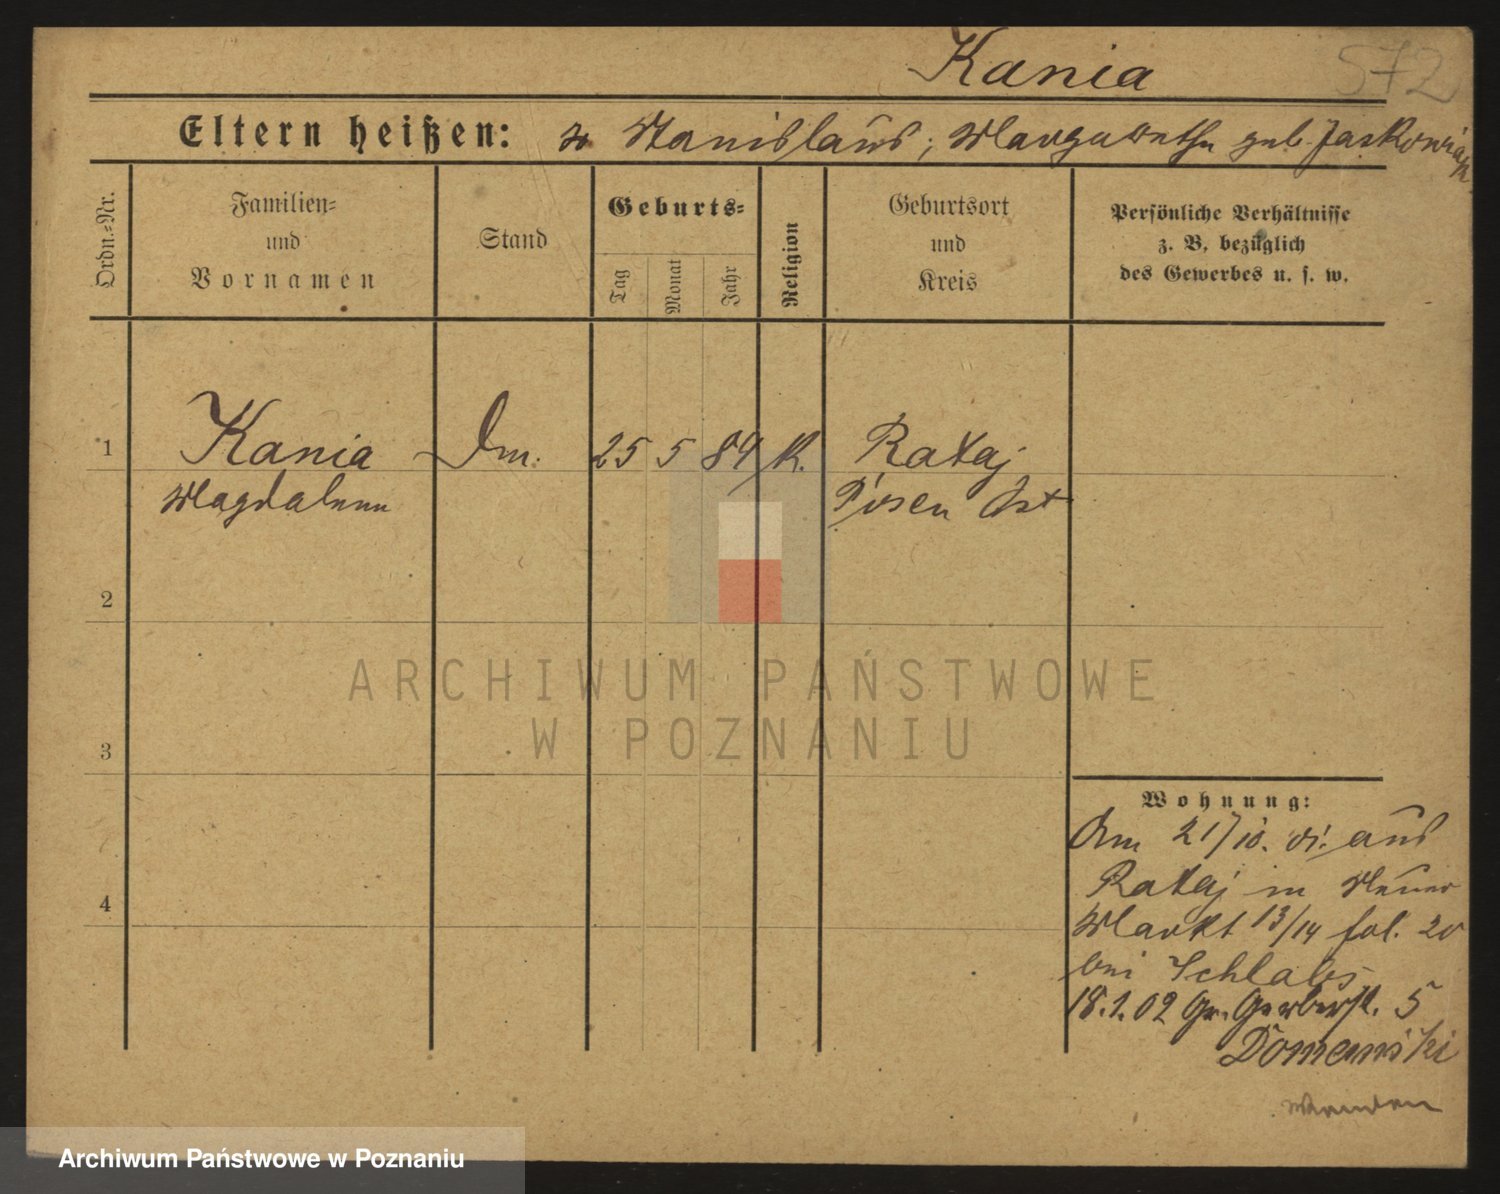 Kania 572
Eltern heißen: Stanislaus, Margarethe geb. Jaskowiak
Ordn.-Nr.
Familien-
und
Vornamen
Stand
Geburts-
Tag
Monat
Jahr
Religion
Geburtsort
und
Kreis
Persönliche Verhältnisse
z. B. bezüglich
des Gewerbes u. s. w.
1 Kania Dm. 25 5 84 K. Rataj
Magdalena Posen Ost
2
3
4
ARCHIWUM PAŃSTWOWE
W POZNANIU
Wohnung:
Am 21/10. 01. aus
Rataj in Neuer
Markt 13/14 fol. 20
bei Schlabs
18.1.02 Gr. Gerberst. 5
Domanski
Archiwum Państwowe w Poznaniu